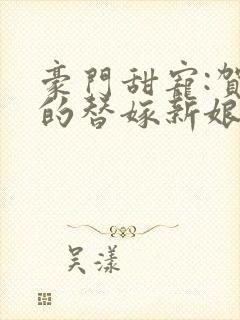 豪門甜寵:賀
的替嫁新娘
吴漾